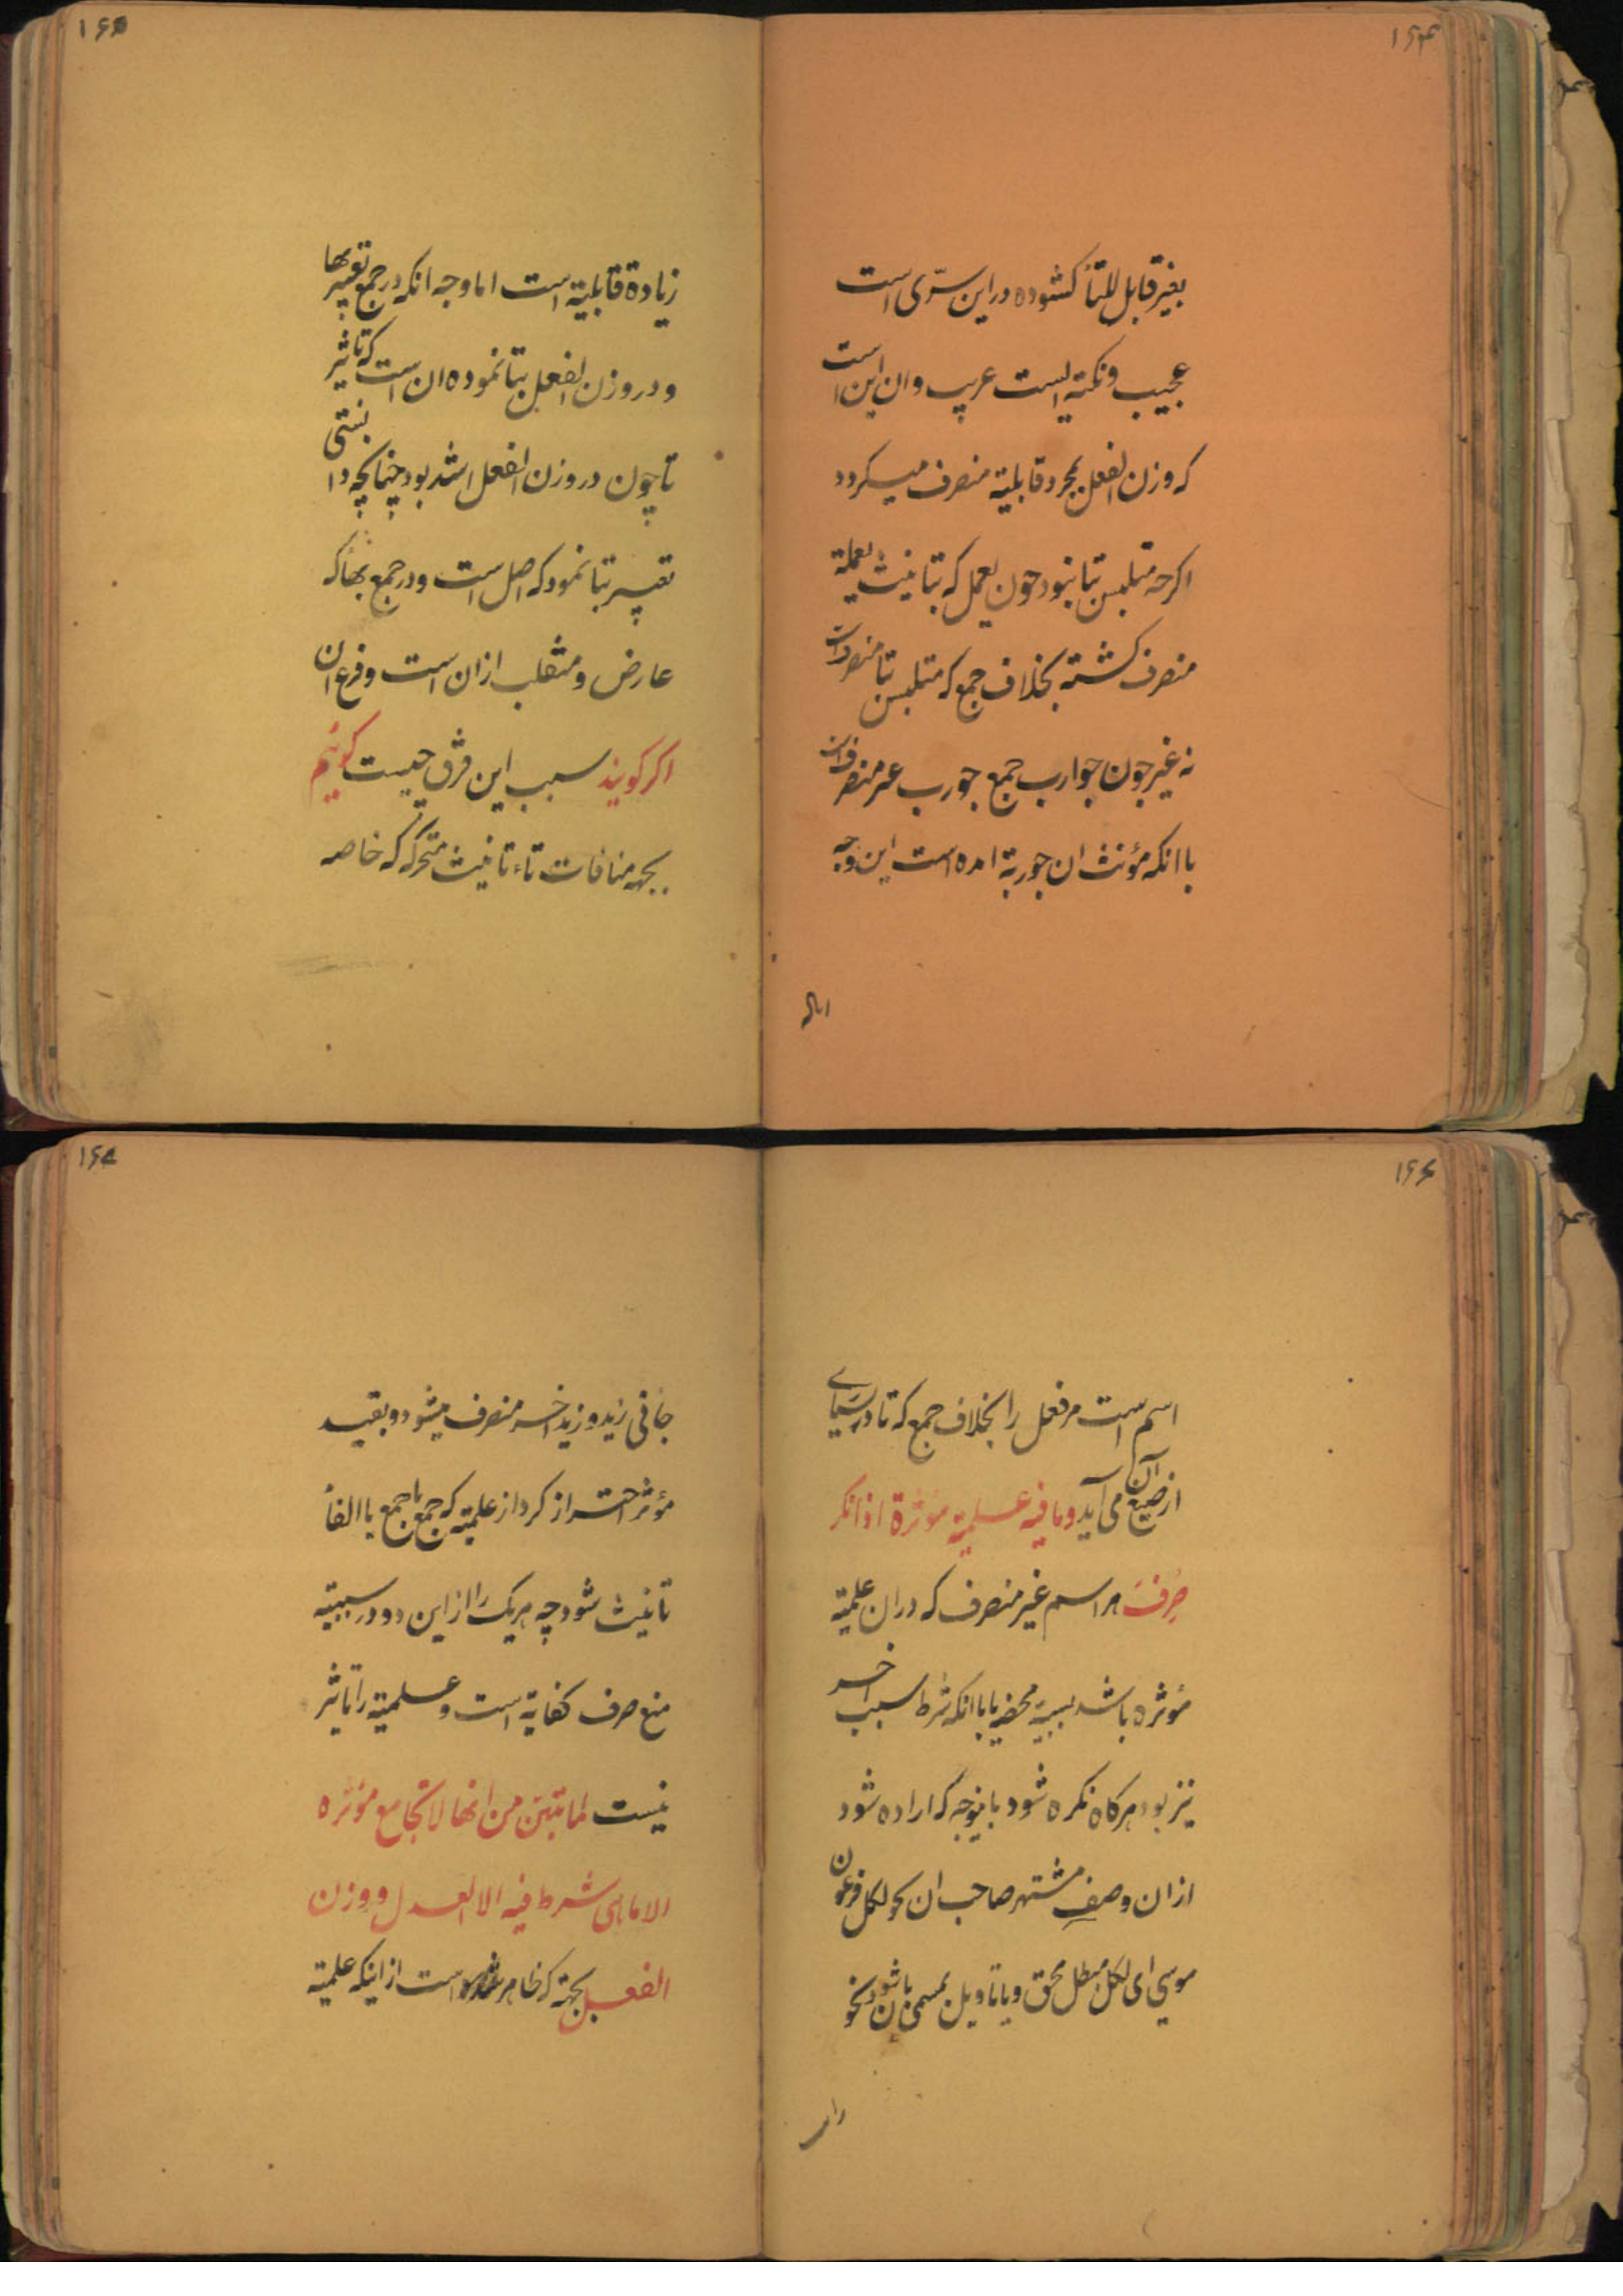 ۱۶۴
بغیر قابل للتا کشوده در این سرّی است
عجیب و نکته ایست غریب و ان این است
که وزن الفعل بمجرد قابلیة منصرف میکردد
اکرچه متلبس بتا نبود چون یعمل که بتانیث یعملة
منصرف کشته بخلاف جمع که متلبس بتا منصرفست
نه غیر چون جوارب جمع جورب غیر منصرفست
با انکه مؤنث ان جوربة امده است این وجه
۱۶۵
زیادة قابلیة است اما وجه انکه در جمع تعبیر بها
و در وزن الفعل بتا نموده ان است که تاثیر
تا چون در وزن الفعل اشد بود چنانچه دانستی
تعبیر بتا نمود که اصل است و در جمع بها که
عارض و منقلب از ان است و فرع ان
اکر کویند سبب این فرق چیست کوئیم
بجهة منافات تاء تانیث متحرکه که خاصه
۱۶۶
اسم است مر فعل را بخلاف جمع که تا در بسیاری
از صیغ آن می آید وما فیه علمیة مؤثرة اذا نکر
صُرِفَ هر اسم غیر منصرف که در ان علمیة
مؤثره باشد بسببیة محضه یا با انکه شرط سبب اخر
نیز بود هرکاه نکره شود باینوجه که اراده شود
از ان وصفِ مشتهر صاحب ان نحو لکل فرعون
موسی ای لکل مبطل محق و یا تاویل بمسمی بان شود نحو
۱۶۷
جائنی زید و زید اخر منصرف میشود و بقید
مؤثر احتراز کرد از علمیة که جمع با جمع یا الفا
تانیث شود چه هر یک را از این دو در سببیة
منع صرف کفایة است و علمیة را تاثیر
نیست لما تبیّن من انها لا تجامع مؤثره
الا ما هی شرط فیه الا العدل و وزن
الفعل بجهة که ظاهر شده است از اینکه علمیة